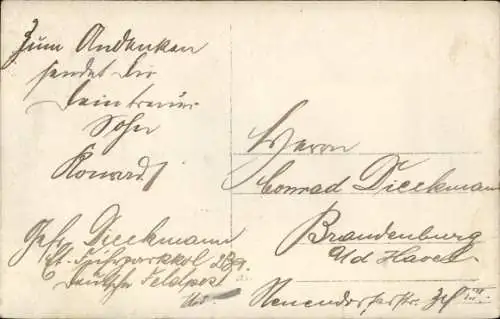 Zum Andenken
sendet Dir
Dein treuer
Sohn
Konrad
Gefr. Dieckmann
Et. Fuhrparkkol. 289.
Deutsche Feldpost
Herrn
Conrad Dieckmann
Brandenburg
a/d Havel
Neuendorferstr.